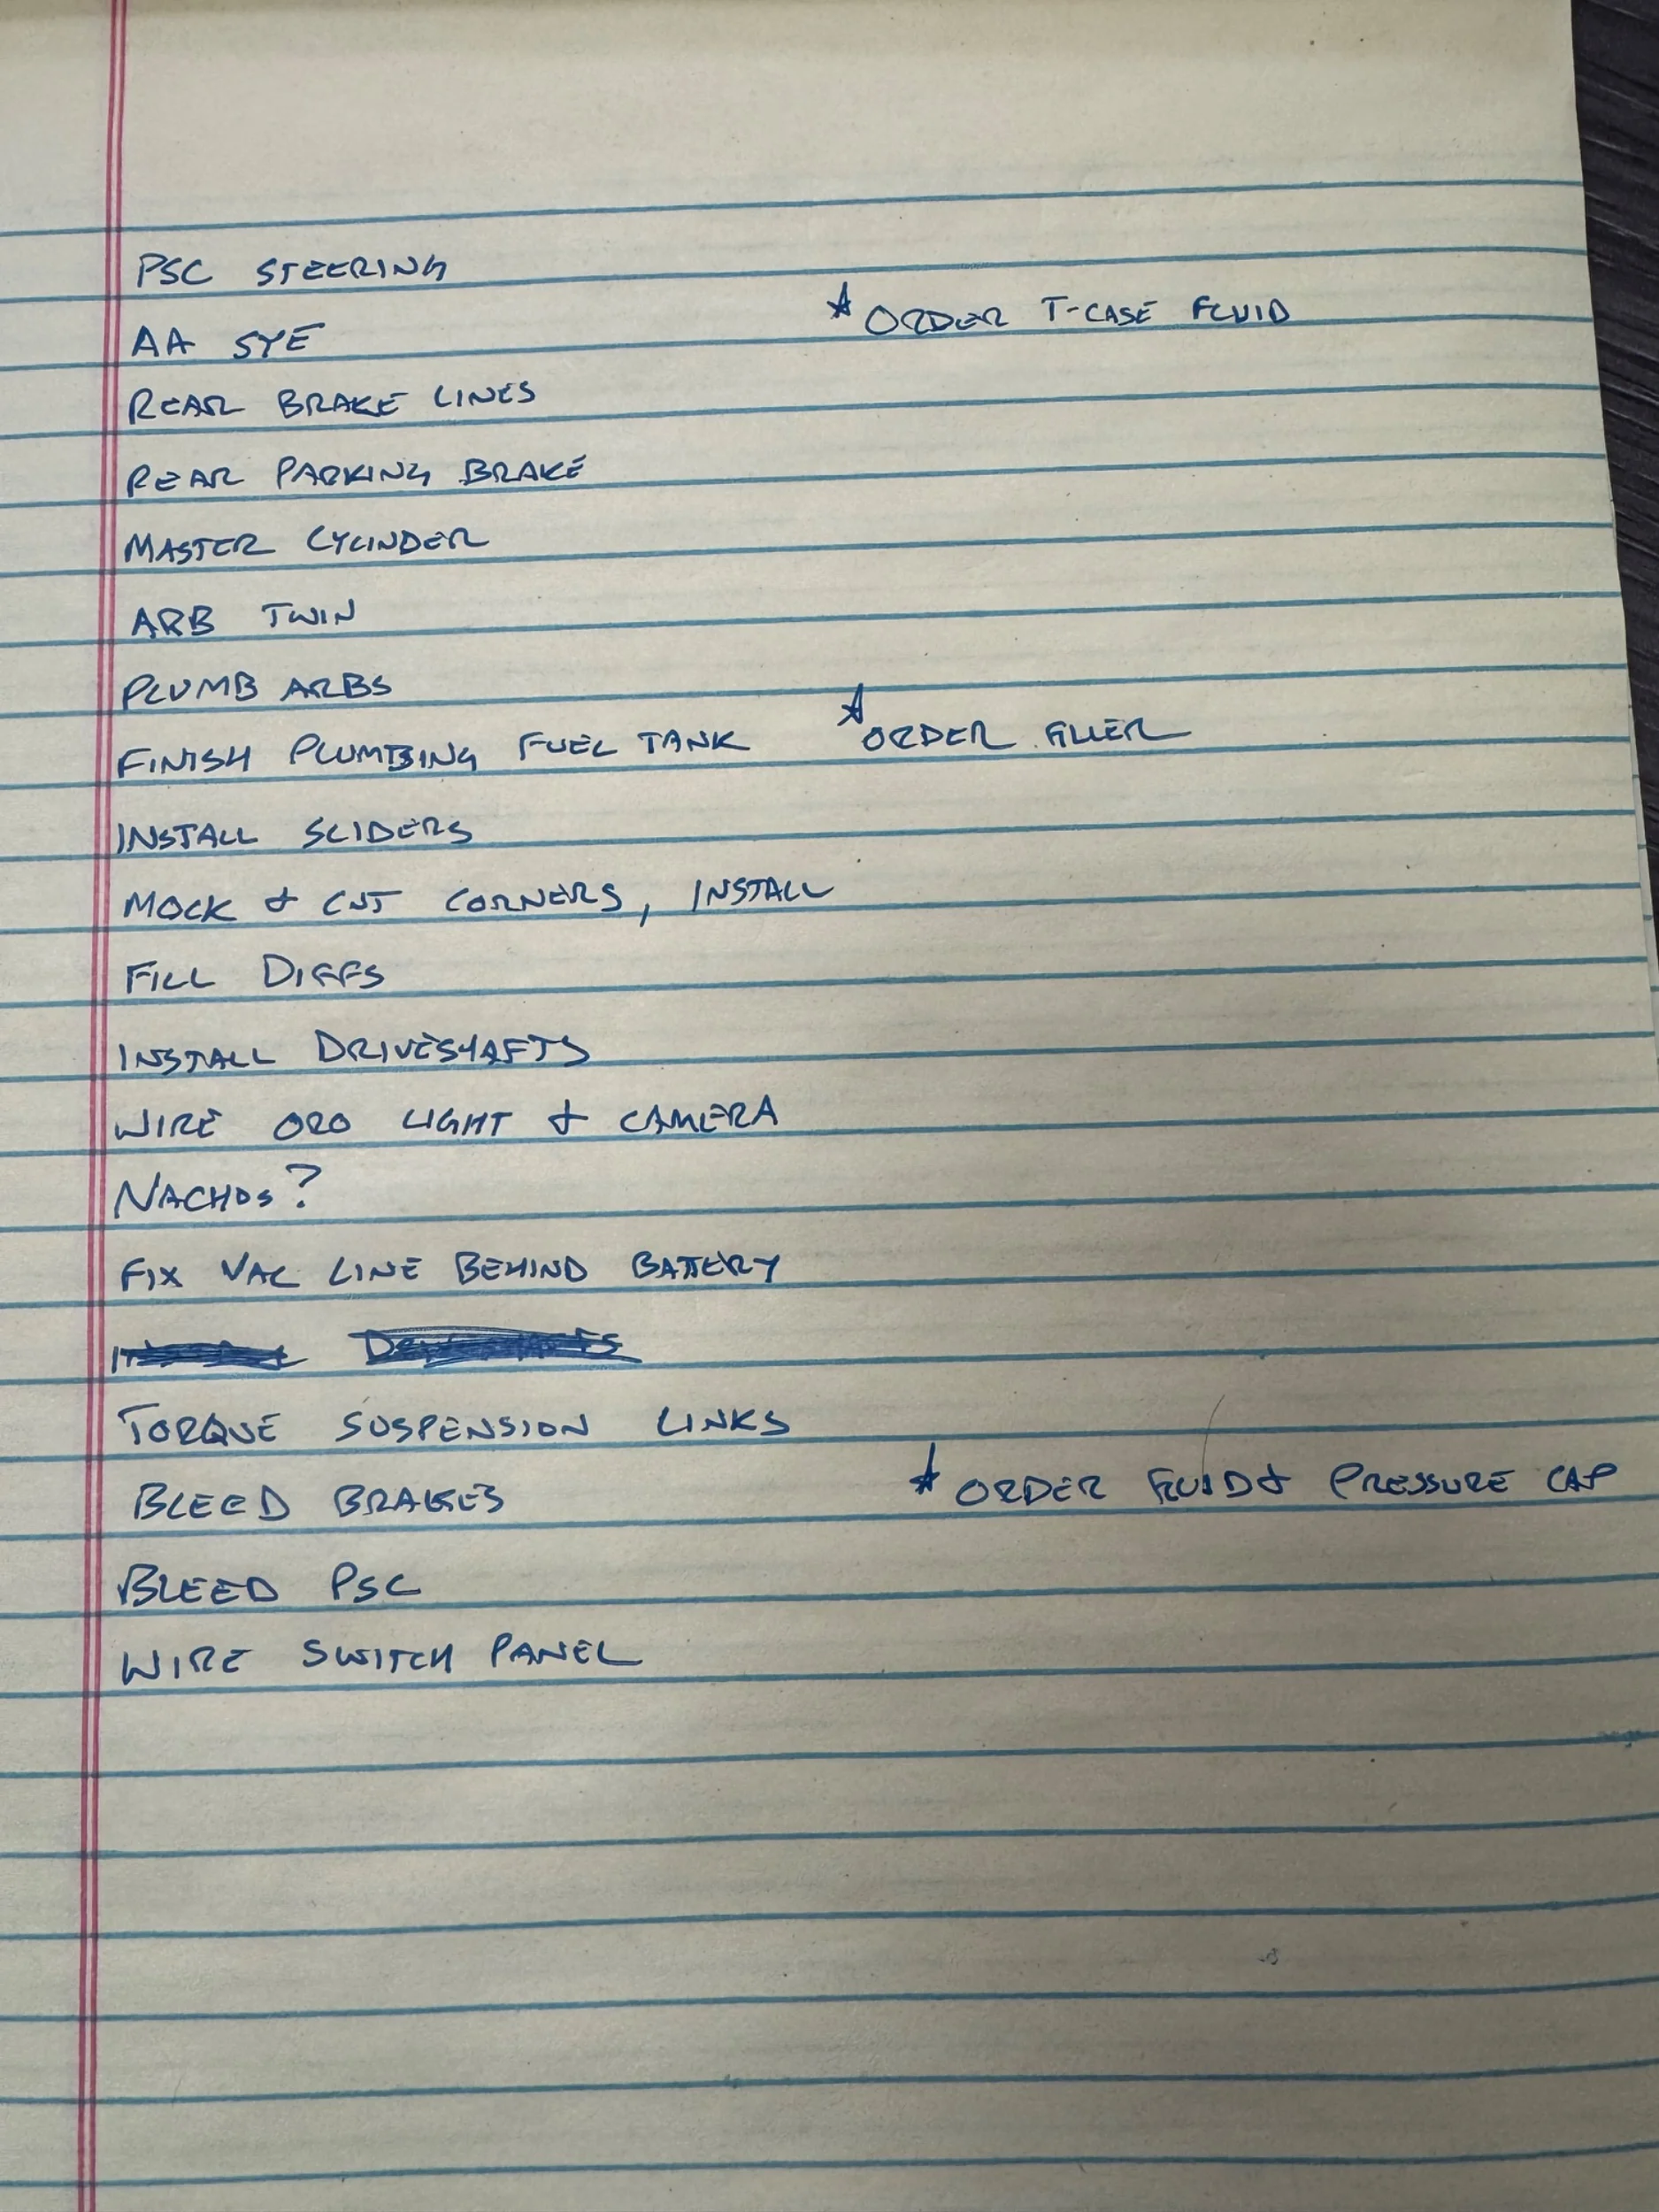 PSC STEERING
AA SYE
★ ORDER T-CASE FLUID
REAR BRAKE LINES
REAR PARKING BRAKE
MASTER CYLINDER
ARB TWIN
PLUMB ARBS
FINISH PLUMBING FUEL TANK ★ ORDER FILLER
INSTALL SLIDERS
MOCK & CUT CORNERS, INSTALL
FILL DIFFS
INSTALL DRIVESHAFTS
WIRE ORO LIGHT & CAMERA
NACHOS?
FIX VAC LINE BEHIND BATTERY
TORQUE SUSPENSION LINKS
BLEED BRAKES ★ ORDER FLUID & PRESSURE CAP
BLEED PSC
WIRE SWITCH PANEL